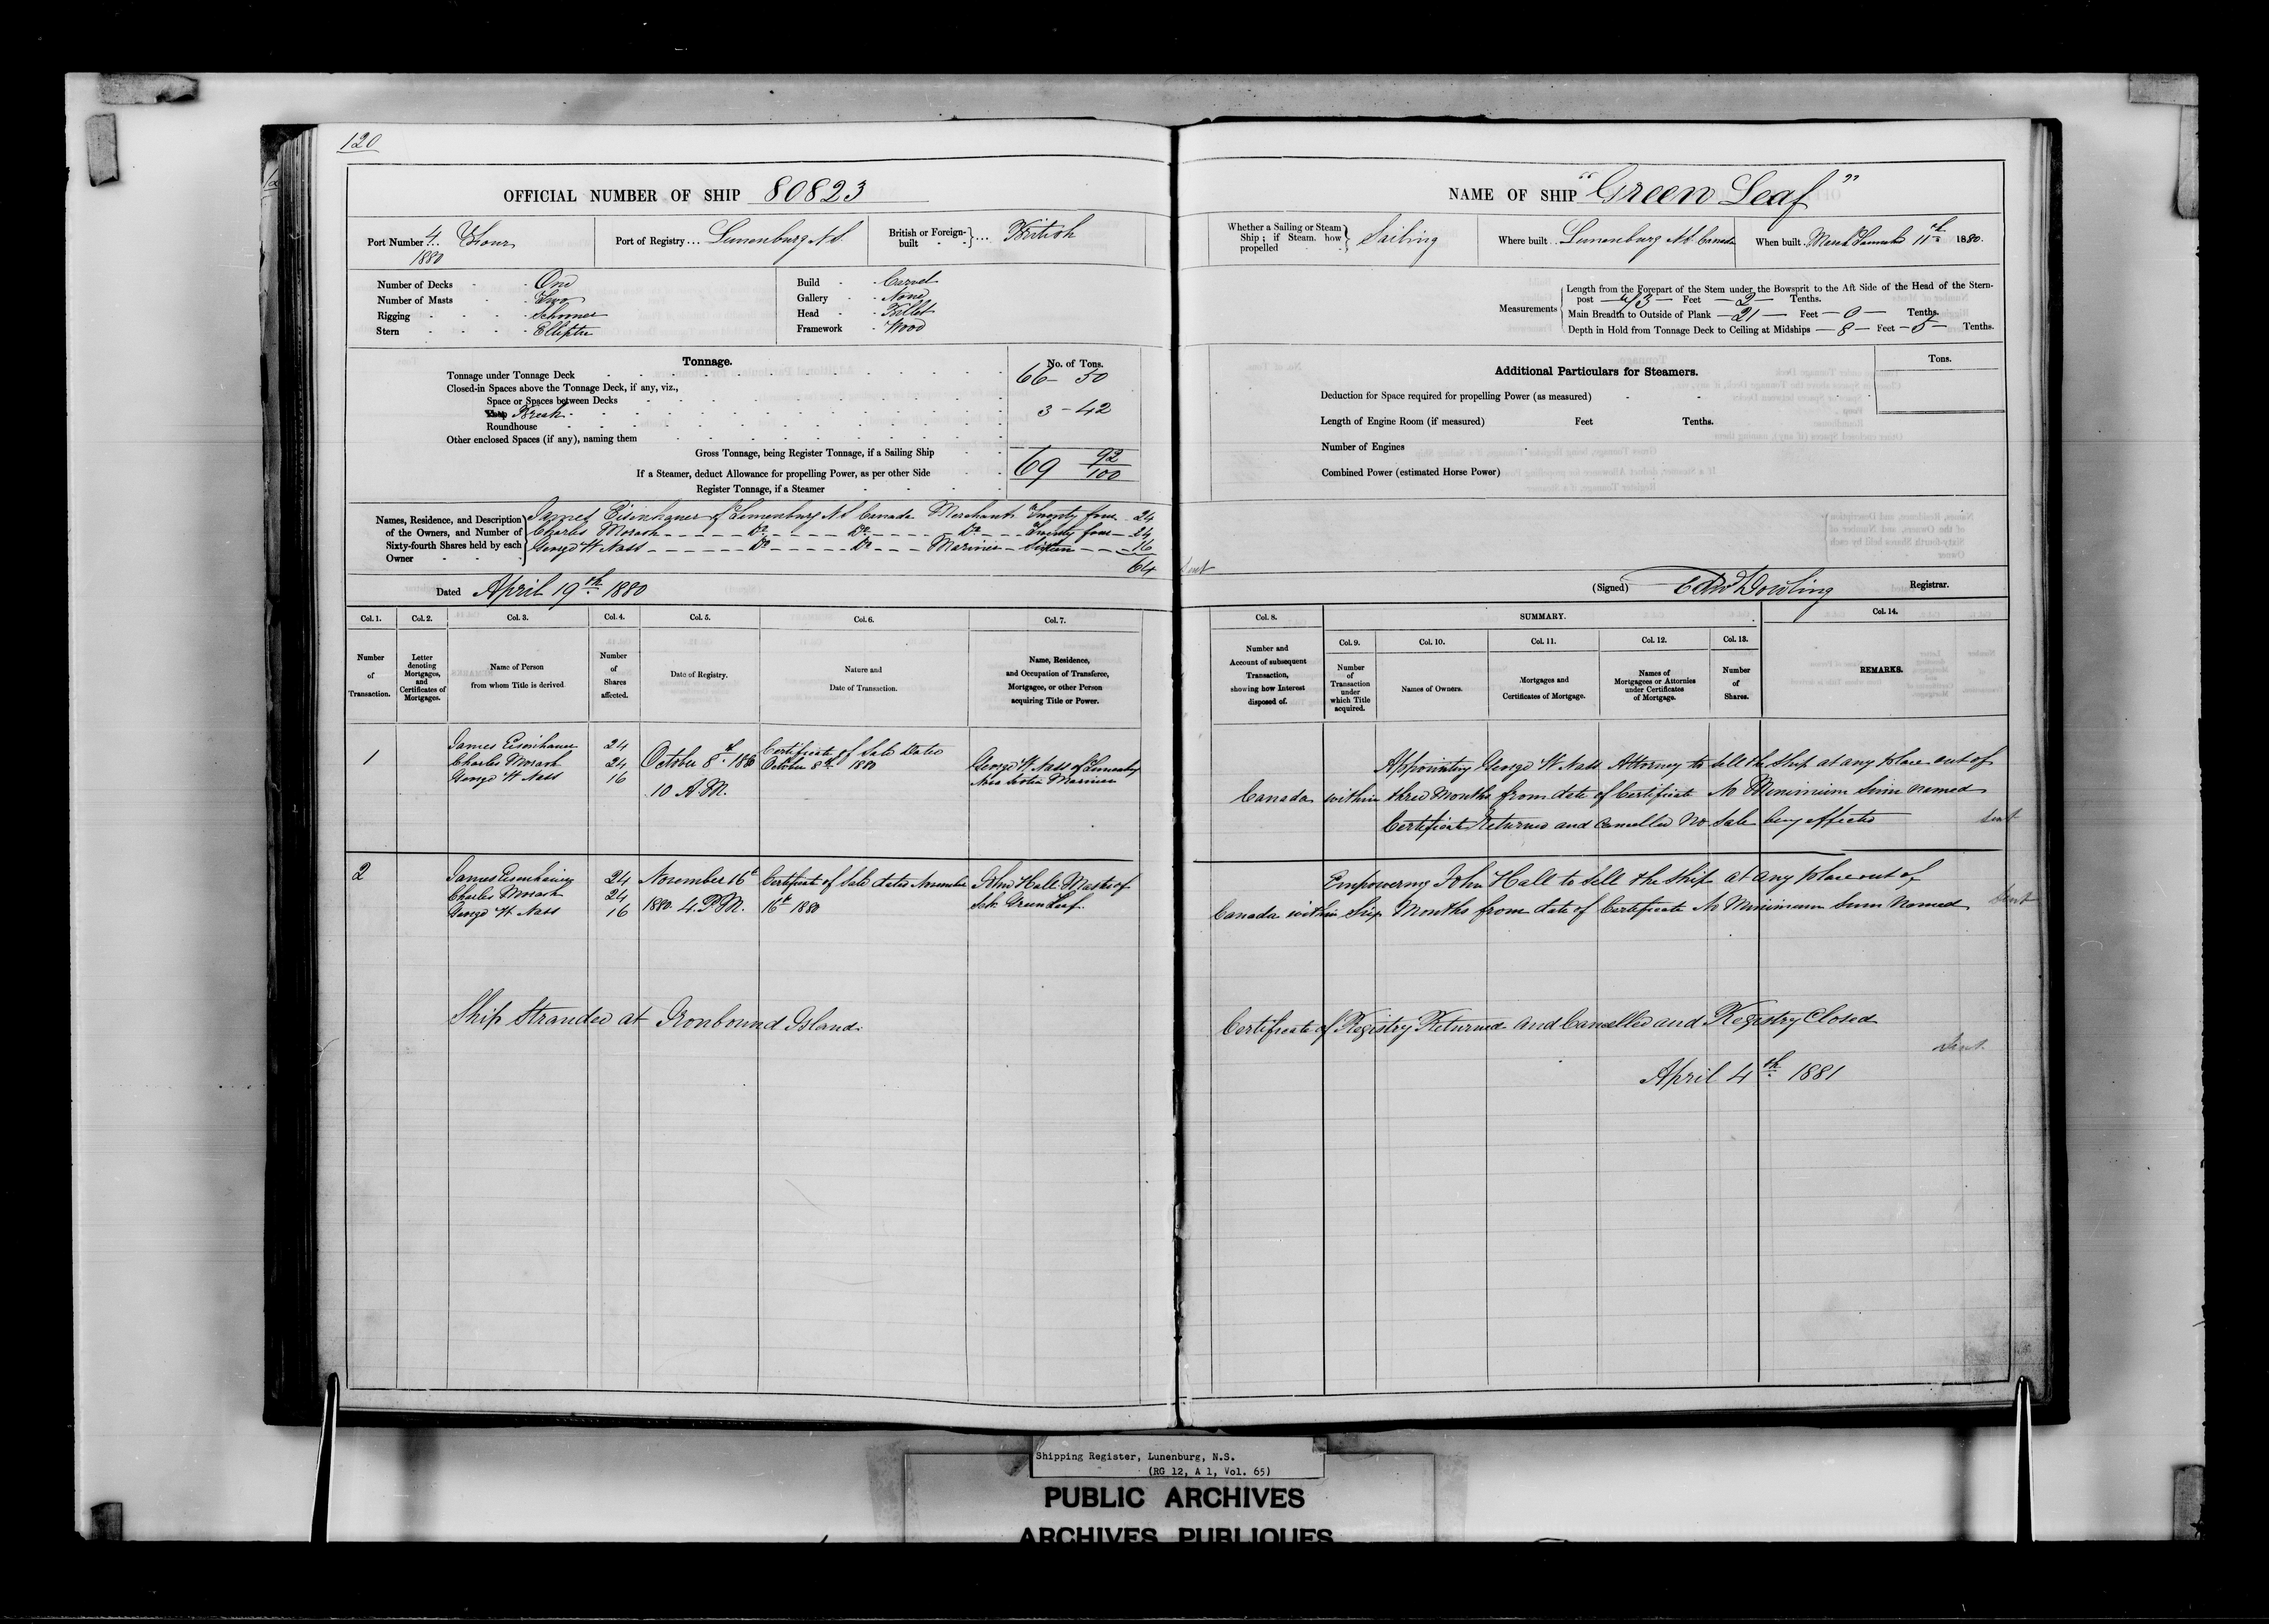 120
OFFICIAL NUMBER OF SHIP 80823
Port Number 4/1880 Four
Port of Registry... Lunenburg N.S.
British or Foreign-built } ... British
Number of Decks One
Number of Masts Two
Rigging Schooner
Stern Elliptic
Build Carvel
Gallery None
Head Billet
Framework Wood
Tonnage.
No. of Tons.
Tonnage under Tonnage Deck 66 - 50
Closed-in Spaces above the Tonnage Deck, if any, viz.,
Space or Spaces between Decks
Poop Break 3 - 42
Roundhouse
Other enclosed Spaces (if any), naming them
Gross Tonnage, being Register Tonnage, if a Sailing Ship 69 92/100
If a Steamer, deduct Allowance for propelling Power, as per other Side
Register Tonnage, if a Steamer
Names, Residence, and Description of the Owners, and Number of Sixty-fourth Shares held by each Owner
James Eisenhauer of Lunenburg N.S. Canada Merchant Twenty four 24
Charles Morash Do Do Do Twenty four 24
George W Nass Do Do Mariner Sixteen 16
64
Dated April 19th 1880
Col. 1. Col. 2. Col. 3. Col. 4. Col. 5. Col. 6. Col. 7.
Number of Transaction.
Letter denoting Mortgages, and Certificates of Mortgages.
Name of Person from whom Title is derived.
Number of Shares affected.
Date of Registry.
Nature and Date of Transaction.
Name, Residence, and Occupation of Transferee, Mortgagee, or other Person acquiring Title or Power.
1
James Eisenhauer 24
Charles Morash 24
George W Nass 16
October 8th 1880
10 A.M.
Certificate of Sale dated
October 8th 1880
George W. Nass of Lunenburg
Nova Scotia Mariner
2
James Eisenhauer 24
Charles Morash 24
George W. Nass 16
November 16th
1880. 4. P.M.
Certificate of Sale dated November
16th 1880
John Hall Master of
Sch. Green Leaf
Ship Stranded at Ironbound Island.
NAME OF SHIP "Green Leaf"
Whether a Sailing or Steam Ship; if Steam, how propelled } Sailing
Where built Lunenburg N.S. Canada
When built 11th 1880.
Measurements
Length from the Forepart of the Stem under the Bowsprit to the Aft Side of the Head of the Stern-
post 73 Feet 2 Tenths.
Main Breadth to Outside of Plank 21 Feet 0 Tenths.
Depth in Hold from Tonnage Deck to Ceiling at Midships 8 Feet 5 Tenths.
Additional Particulars for Steamers.
Tons.
Deduction for Space required for propelling Power (as measured)
Length of Engine Room (if measured) Feet Tenths.
Number of Engines
Combined Power (estimated Horse Power)
Sent
(Signed) Edw Dowling Registrar.
Col. 8. SUMMARY. Col. 14.
Col. 9. Col. 10. Col. 11. Col. 12. Col. 13.
Number and Account of subsequent Transaction, showing how Interest disposed of.
Number of Transaction under which Title acquired.
Names of Owners.
Mortgages and Certificates of Mortgage.
Names of Mortgagees or Attornies under Certificates of Mortgage.
Number of Shares.
REMARKS.
Appointing George W Nass Attorney to sell the Ship at any place out of
Canada within three Months from date of Certificate No Minimum Sum named
Certificate Returned and Cancelled No Sale being effected
Sent
Empowering John Hall to sell the Ship at any place out of
Canada within Six Months from date of Certificate No Minimum Sum Named
Sent
Certificate of Registry Returned and Cancelled and Registry Closed
Sent
April 4th 1881
Shipping Register, Lunenburg, N.S.
(RG 12, A 1, Vol. 65)
PUBLIC ARCHIVES
ARCHIVES PUBLIQUES